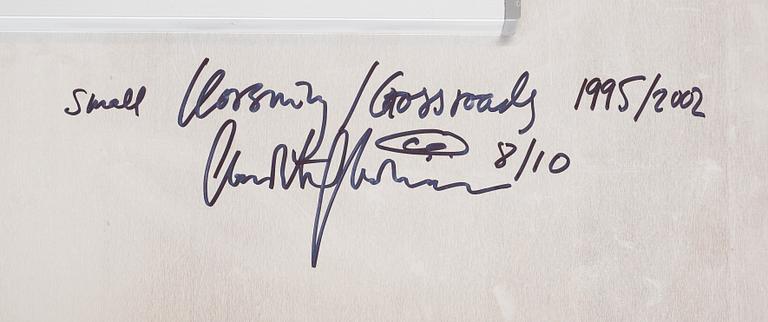 small Korsning/Crossroads 1995/2002
8/10